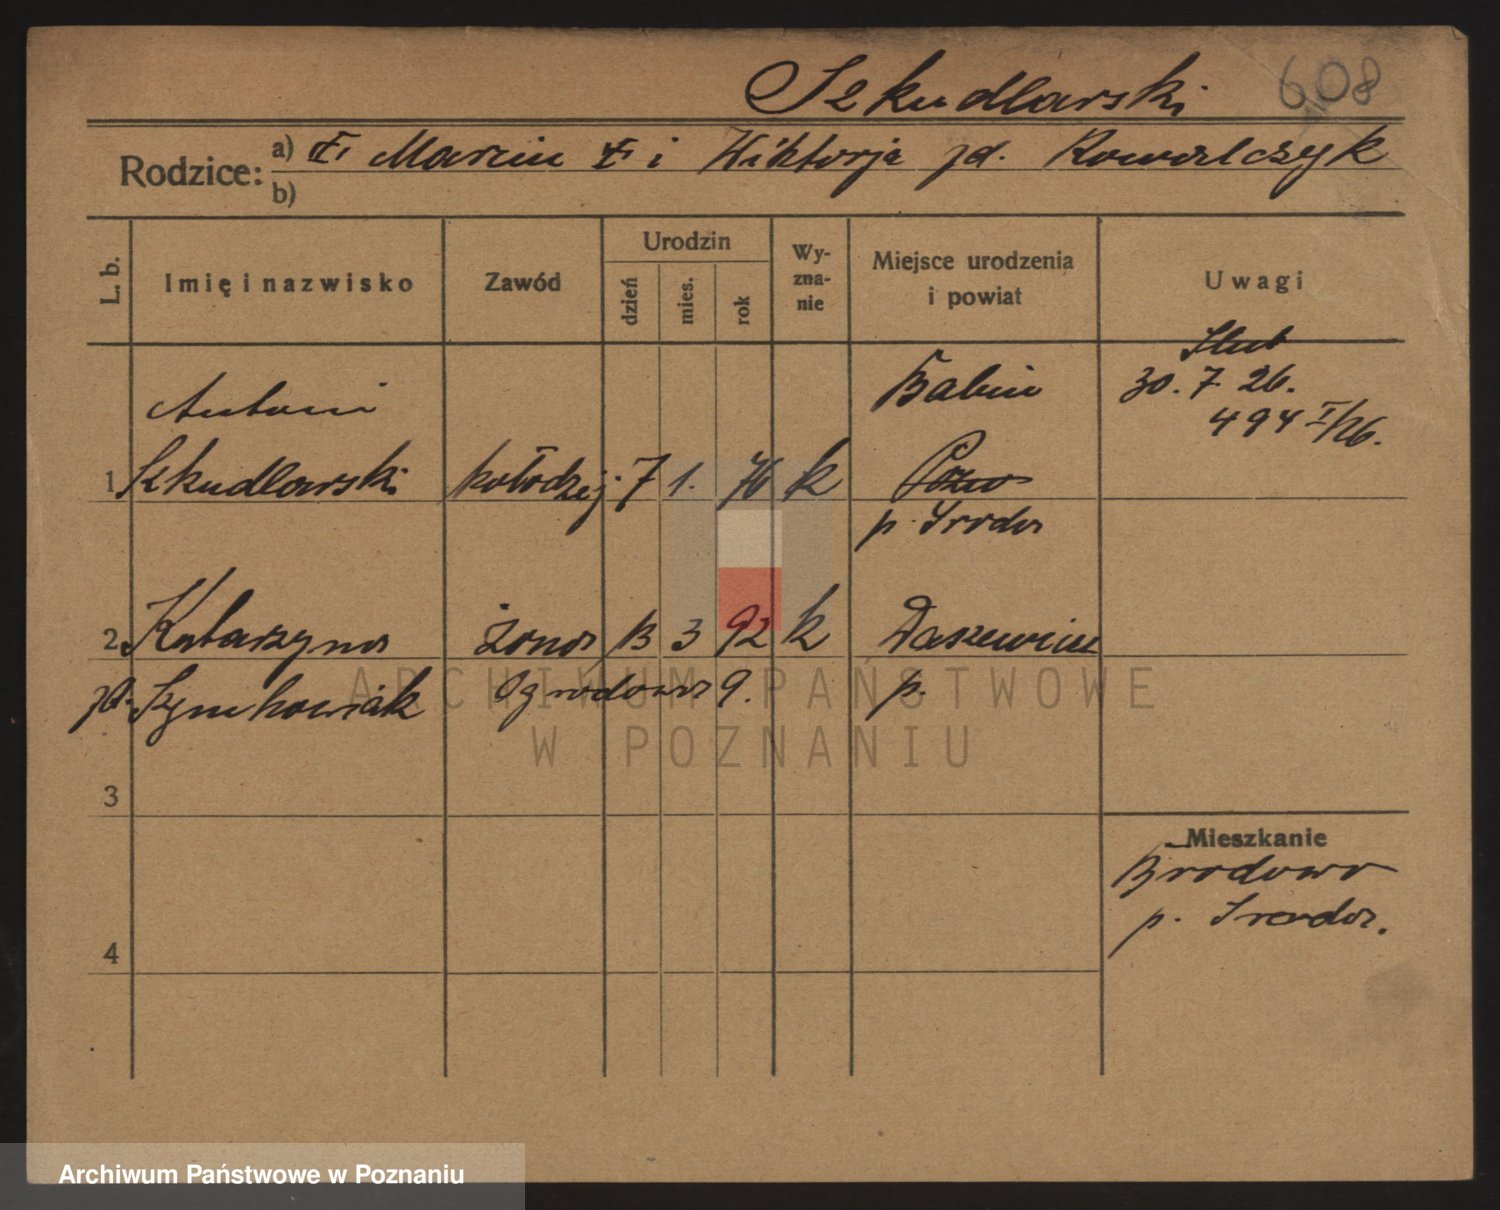 Szkudlarski 608
Rodzice: a) Marcin i Wiktorja zd. Kowalczyk
b)
L. b. Imię i nazwisko Zawód Urodzin dzień mies. rok Wyznanie Miejsce urodzenia i powiat Uwagi
Ślub
30. 7. 26.
494 I/26.
Antoni Babin
1. Szkudlarski kołodziej 7 1. 76 k
p. Środa
2. Katarzyna żona 13 3 92 k Daszewice
zd. Szymkowiak Ogrodowa 9. p.
3
Mieszkanie
Brodowo
p. Środa.
4
ARCHIWUM PAŃSTWOWE
W POZNANIU
Archiwum Państwowe w Poznaniu